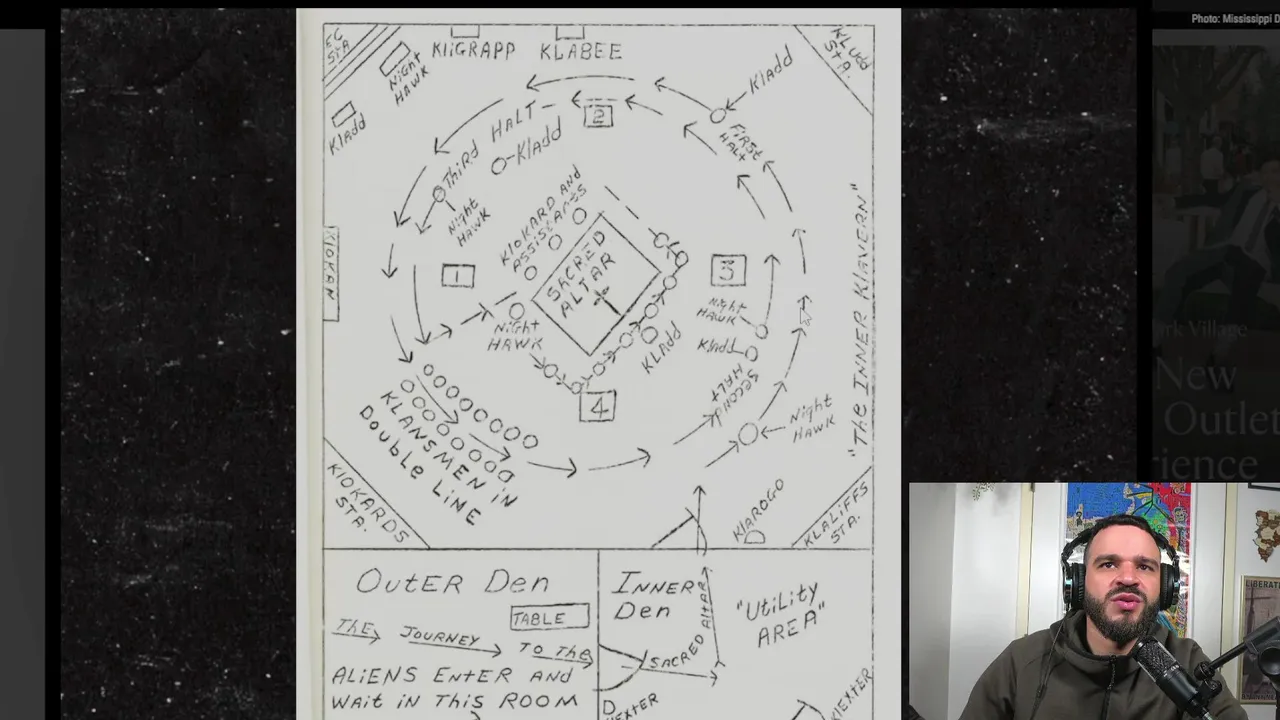 Photo: Mississippi D
EC
STA
NiGHT
HAWK
KliGRAPP
KLABEE
KLudd
STA.
Kladd
Kladd
2
FiRST
HALT
THiRD HALT-
O-Kladd
NigHT
HAWK
KlOKARD AND
ASSiSTANTS
SACRED
ALTAR
1
3
4
KlOKAN
NigHT
HAWK
NigHT
HAWK
Kladd
KLAdd
SECOND
HALT
NigHT
HAWK
"THE INNER KlAVERN"
KLANSMEN iN
DOUBLE LiNE
KlOKARDS
STA.
KlAROGO
KLALiFFS
STA.
OuTER DEN
TABLE
THE JOURNEY TO THE
ALiENS ENTER AND
WAiT iN THiS ROOM
INNER
DEN
SACRED ALTAR
"UTiLiTY
AREA"
KlEXTER
ark Village
New
Outlet
rience
LIBERATE